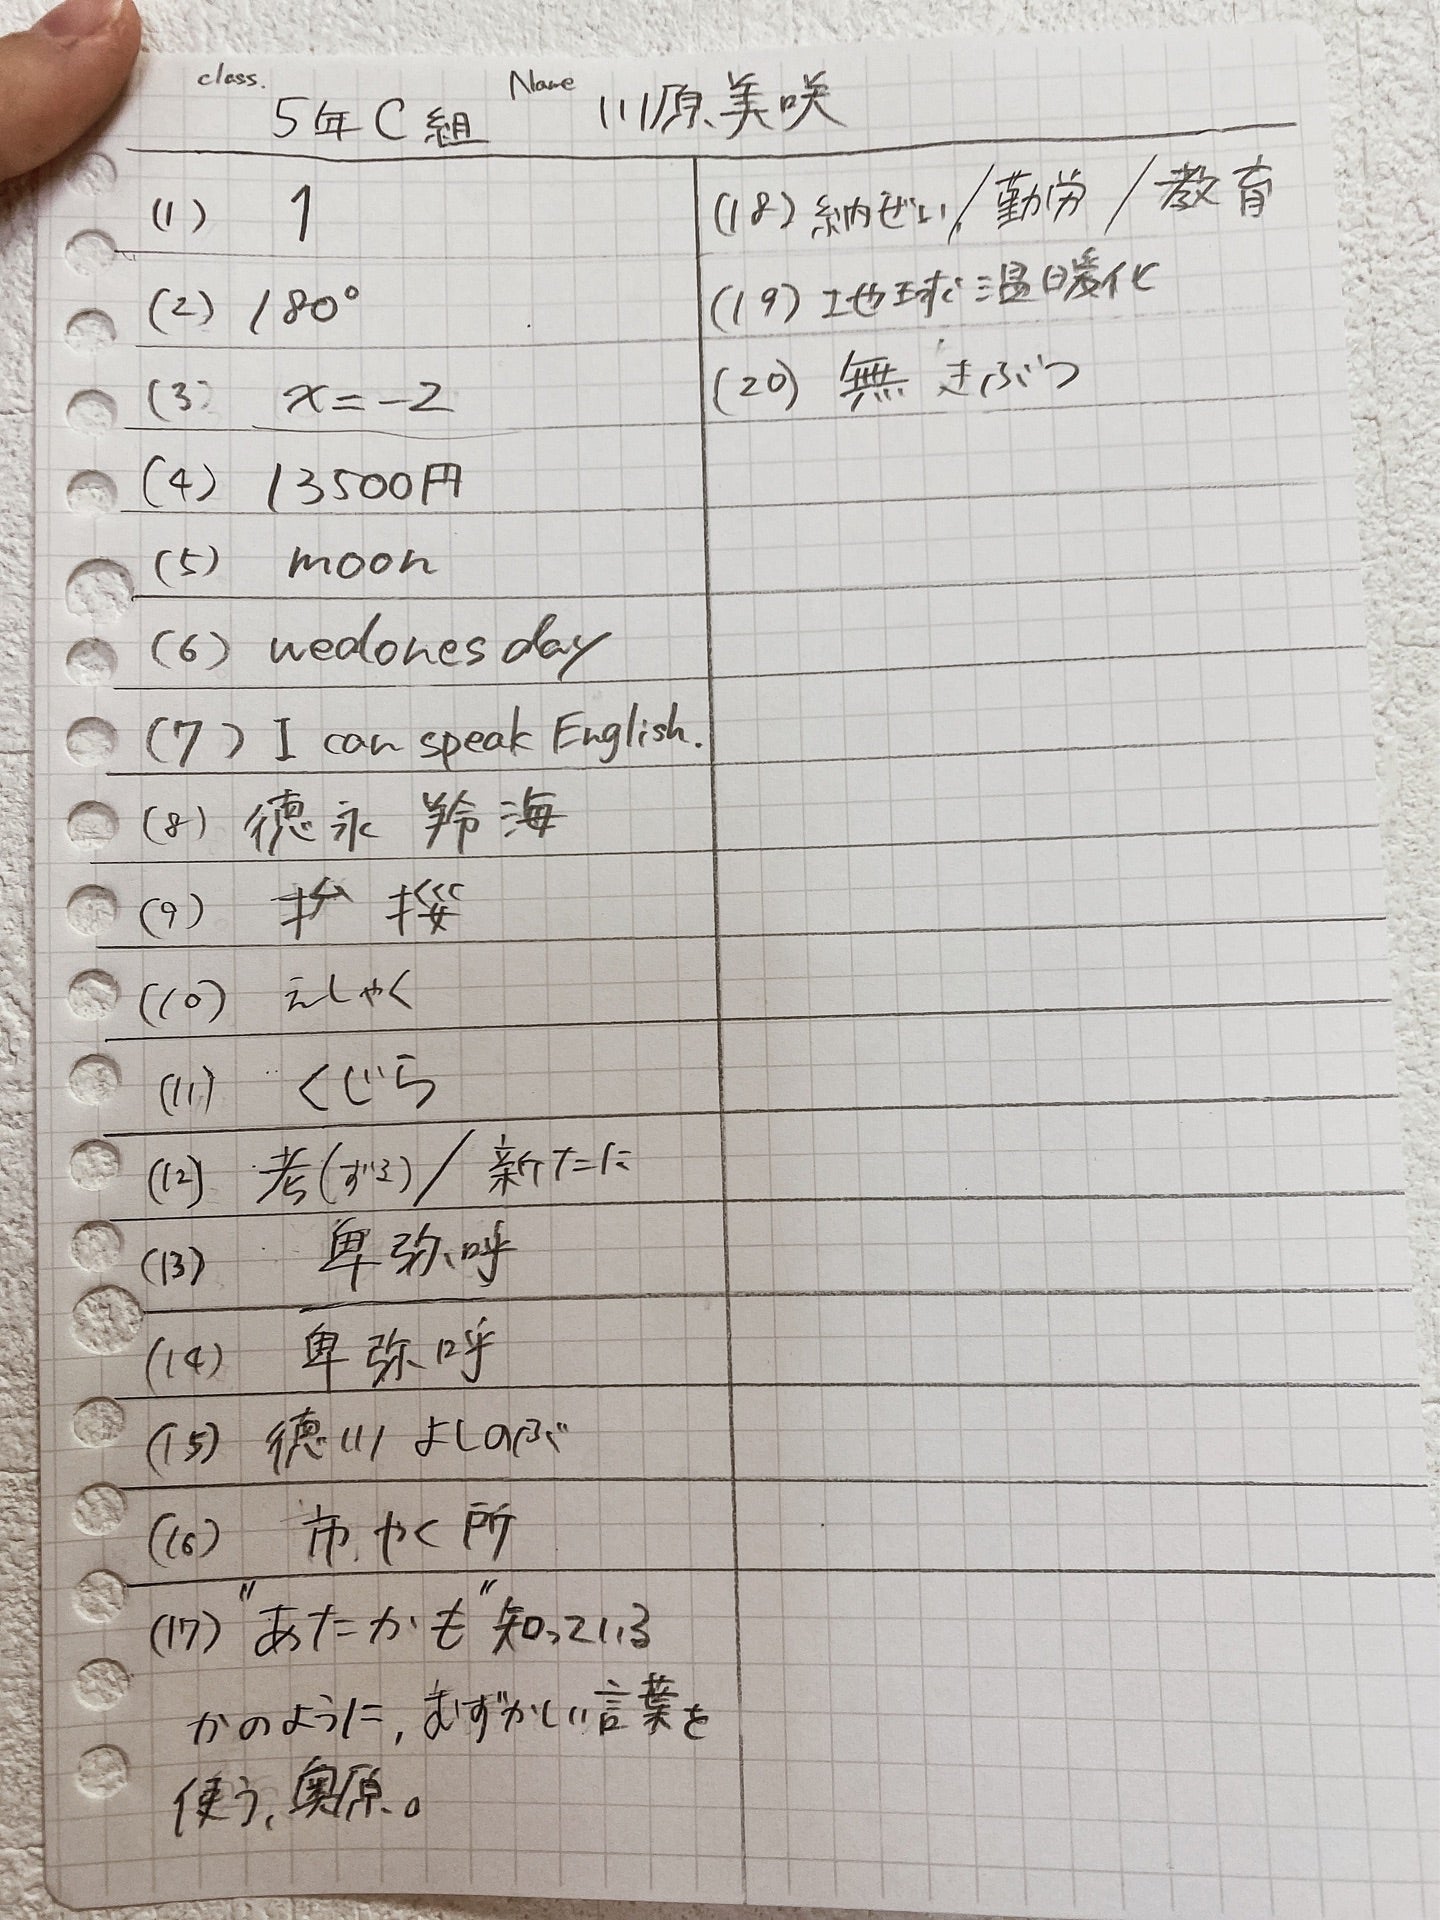 class. Name
5年C組 川原美咲
(1) 1
(2) 180°
(3) x=-2
(4) 13500円
(5) moon
(6) wedonesday
(7) I can speak English.
(8) 徳永 羚海
(9) 挨拶
(10) えしゃく
(11) くじら
(12) 考(ずる)/新たに
(13) 卑弥呼
(14) 卑弥呼
(15) 徳川よしのぶ
(16) 市やく所
(17) "あたかも"知っている
かのように,むずかしい言葉を
使う、奥原。
(18) 納ぜい/勤労/教育
(19) 地球温暖化
(20) 無きぶつ